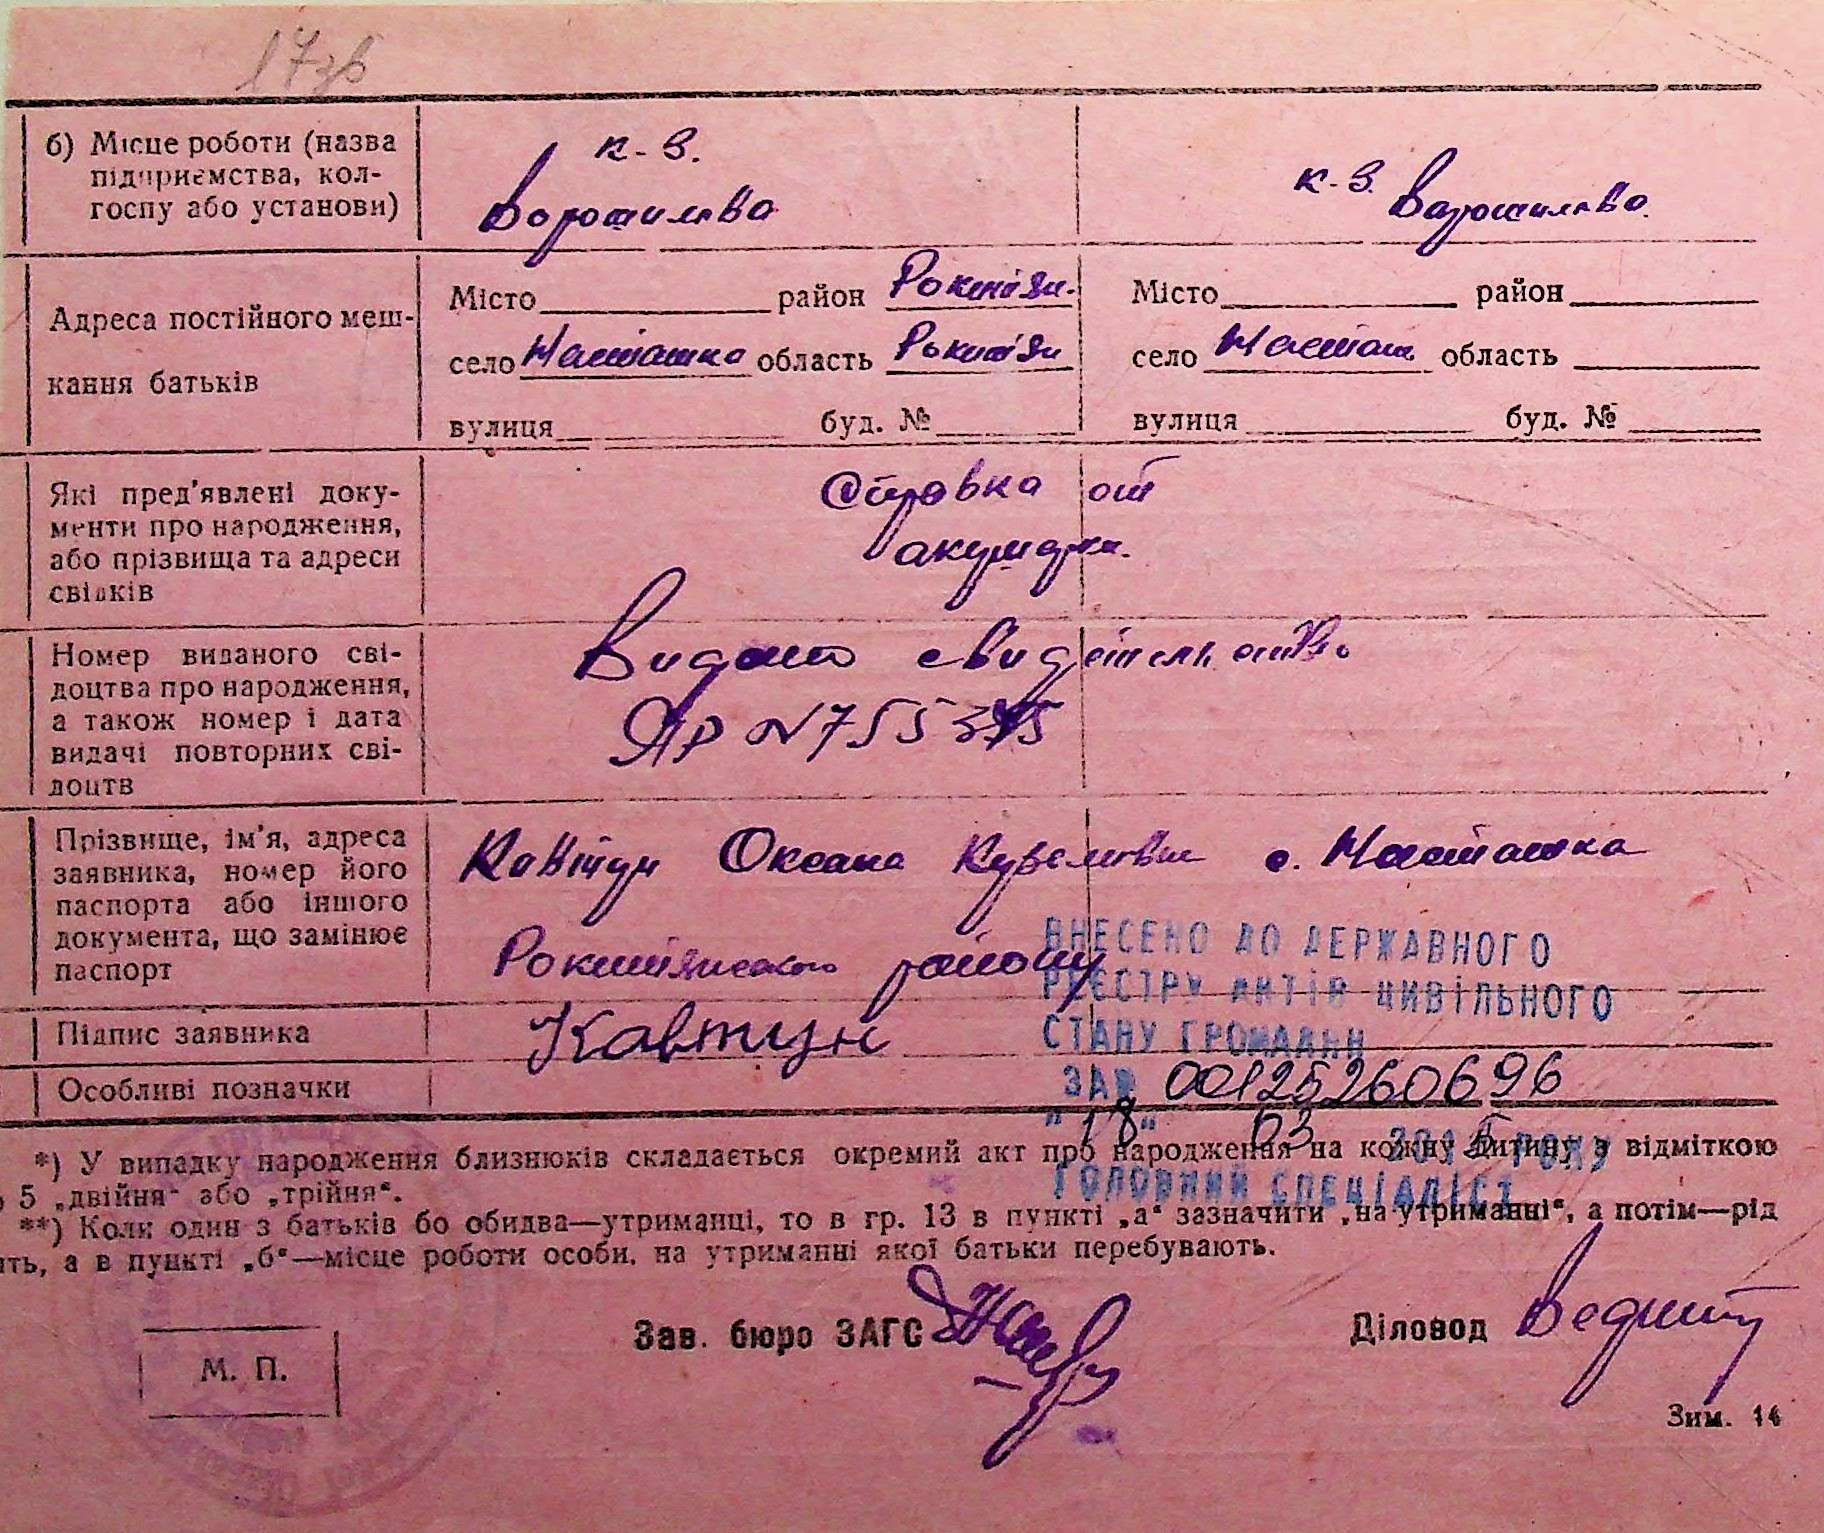 17зв
б) Місце роботи (назва
підприємства, кол-
госпу або установи)
к-з.
Ворошилова
к-з. Ворошилова.
Адреса постійного меш-
кання батьків
Місто район Рокитнян.
село Насташка область
вулиця буд. №
Місто район
село Насташк. область
вулиця буд. №
Які пред'явлені доку-
менти про народження,
або прізвища та адреси
свідків
Справка от
акушерки.
Номер виданого сві-
доцтва про народження,
а також номер і дата
видачі повторних сві-
доцтв
Видано свидетельство
ЯР N 755375
Прізвище, ім'я, адреса
заявника, номер його
паспорта або іншого
документа, що замінює
паспорт
Ковтун Оксана с. Насташка
Рокитнянского району
Підпис заявника
Ковтун
Особливі позначки
ВНЕСЕНО ДО ДЕРЖАВНОГО
РЕЄСТРУ АКТІВ ЦИВІЛЬНОГО
СТАНУ ГРОМАДЯН
ЗА № 00125260696
"18" 03 2015 РОКУ
ГОЛОВНИЙ СПЕЦІАЛІСТ
*) У випадку народження близнюків складається окремий акт про народження на кожну дитину з відміткою
5 „двійня" або „трійня".
**) Коли один з батьків бо обидва—утриманці, то в гр. 13 в пункті „а" зазначити „на утриманні", а потім—рід
ть, а в пункті „б"—місце роботи особи, на утриманні якої батьки перебувають.
Зав. бюро ЗАГС
Діловод
М. П.
Зим. 14